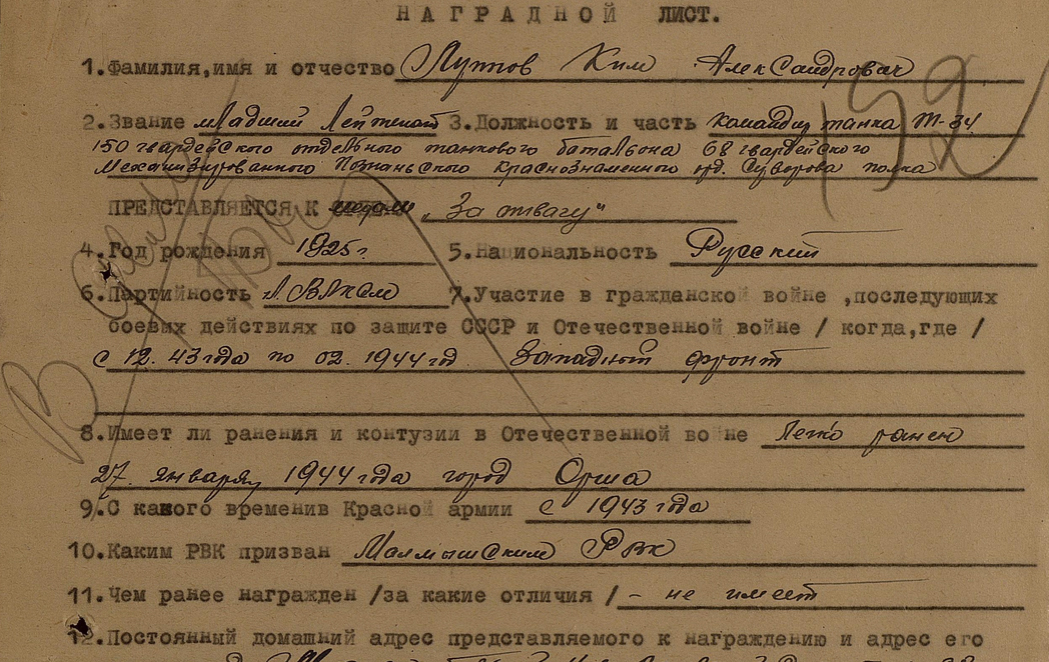 НАГРАДНОЙ ЛИСТ.
1.Фамилия,имя и отчество Луппов Ким Александрович
2.Звание младший лейтенант 3.Должность и часть командир танка Т-34
150 гвардейского отдельного танкового батальона 68 гвардейского
механизированного Познаньского краснознаменного орд. Суворова полка
ПРЕДСТАВЛЯЕТСЯ К медали „За отвагу"
4.Год рождения 1925г. 5.Национальность Русский
6.Партийность 7.Участие в гражданской войне ,последующих
боевых действиях по защите СССР и Отечественной войне / когда,где /
с 12. 43 года по 02. 1944 год Западный фронт
8.Имеет ли ранения и контузии в Отечественной войне Легко ранен
27. января 1944 года город Орша
9.С какого временив Красной армии с 1943 года
10.Каким РВК призван Малмышским Рвк
11.Чем ранее награжден /за какие отличия / - не имеет
12.Постоянный домашний адрес представляемого к награждению и адрес его